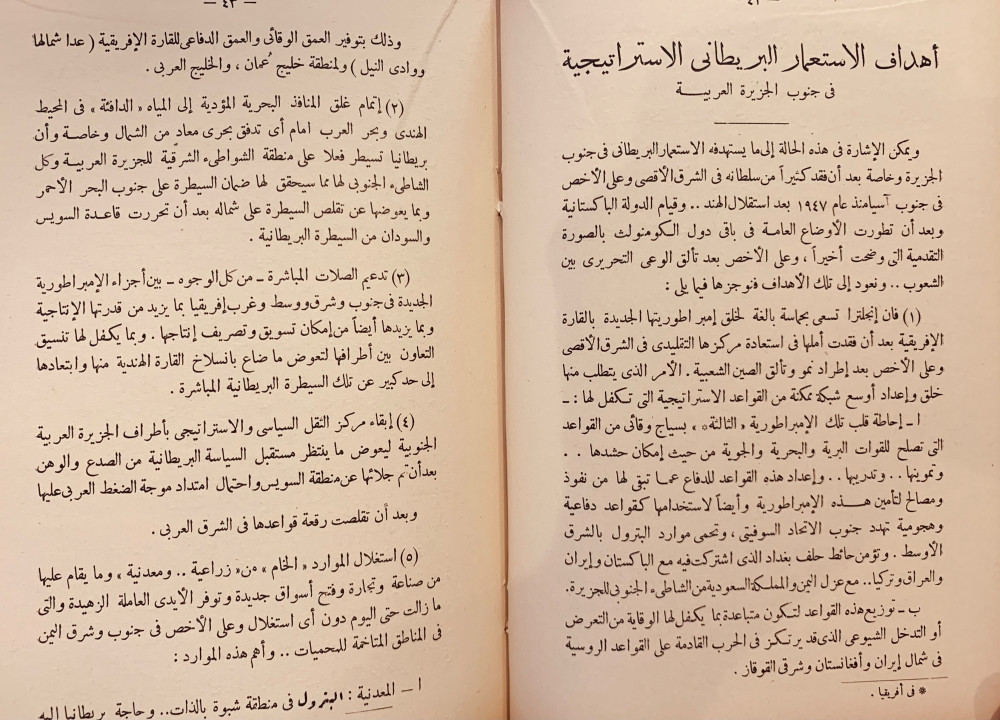 — ٤٢ —
أهداف الاستعمار البريطانى الاستراتيجية
فى جنوب الجزيرة العربية
ويمكن الإشارة فى هذه الحالة إلى ما يستهدفه الاستعمار البريطانى فى جنوب
الجزيرة وخاصة بعد أن فقد كثيراً من سلطانه فى الشرق الأقصى وعلى الأخص
فى جنوب آسيا منذ عام ١٩٤٧ بعد استقلال الهند .. وقيام الدولة الباكستانية
وبعد أن تطورت الأوضاع العامة فى باقى دول الكومنولث بالصورة
التقدمية التى وضحت أخيراً ، وعلى الأخص بعد تألق الوعى التحريرى بين
الشعوب .. ونعود إلى تلك الأهداف فنوجزها فيما يلى :
(١) فان إنجلترا تسعى بحماسة بالغة لخلق إمبراطوريتها الجديدة بالقارة
الإفريقية بعد أن فقدت أملها فى استعادة مركزها التقليدى فى الشرق الأقصى
وعلى الأخص بعد إطراد نمو وتألق الصين الشعبية . الأمر الذى يتطلب منها
خلق وإعداد أوسع شبكة ممكنة من القواعد الاستراتيجية التى تكفل لها : ـ
ا ـ إحاطة قلب تلك الإمبراطورية « الثالثة* » بسياج وقائى من القواعد
التى تصلح للقوات البرية والبحرية والجوية من حيث إمكان حشدها . .
وتموينها .. وتدريبها .. وإعداد هذه القواعد للدفاع عما تبقى لها من نفوذ
ومصالح لتأمين هذه الإمبراطورية وأيضاً لاستخدامها كقواعد دفاعية
وهجومية تهدد جنوب الاتحاد السوفيتى ، وتحمى موارد البترول بالشرق
الأوسط . وتؤمن حائط حلف بغداد الذى اشتركت فيه مع الباكستان وإيران
والعراق وتركيا .. مع عزل اليمن والمملكة السعودية من الشاطىء الجنوبى للجزيرة.
ب ـ توزيع هذه القواعد لتكون متباعدة بما يكفل لها الوقاية من التعرض
أو التدخل الشيوعى الذى قد يرتكز فى الحرب القادمة على القواعد الروسية
فى شمال إيران وأفغانستان وشرقى القوقاز .
* فى أفريقيا .
— ٤٣ —
وذلك بتوفير العمق الوقائى والعمق الدفاعى للقارة الإفريقية ( عدا شمالها
ووادى النيل ) ولمنطقة خليج عُمان ، والخليج العربى .
(٢) إتمام غلق المنافذ البحرية المؤدية إلى المياه « الدافئة » فى المحيط
الهندى وبحر العرب امام أى تدفق بحرى معادٍ من الشمال وخاصة وأن
بريطانيا تسيطر فعلا على منطقة الشواطىء الشرقية للجزيرة العربية وكل
الشاطىء الجنوبى لها مما سيحقق لها ضمان السيطرة على جنوب البحر الأحمر
وبما يعوضها عن تقلص السيطرة على شماله بعد أن تحررت قاعدة السويس
والسودان من السيطرة البريطانية .
(٣) تدعيم الصلات المباشرة ـ من كل الوجوه ـ بين أجزاء الإمبراطورية
الجديدة فى جنوب وشرق ووسط وغرب إفريقيا بما يزيد من قدرتها الإنتاجية
وبما يزيدها أيضاً من إمكان تسويق وتصريف إنتاجها . وبما يكفل لها تنسيق
التعاون بين أطرافها لتعوض ما ضاع بانسلاخ القارة الهندية منها وابتعادها
إلى حد كبير عن تلك السيطرة البريطانية المباشرة .
(٤) إبقاء مركز الثقل السياسى والاستراتيجى بأطراف الجزيرة العربية
الجنوبية ليعوض ما يفتظر مستقبل السياسة البريطانية من الصدع والوهن
بعد أن تم جلائها عن منطقة السويس واحتمال امتداد موجة الضغط العربى عليها
وبعد أن تقلصت رقعة قواعدها فى الشرق العربى .
(٥) استغلال الموارد « الخام » من « زراعية .. ومعدنية » وما يقام عليها
من صناعة وتجارة وفتح أسواق جديدة وتوفر الأيدى العاملة الزهيدة والتى
ما زالت حتى اليوم دون أى استغلال وعلى الأخص فى جنوب وشرق اليمن
فى المناطق المتاخمة للمحميات .. وأهم هذه الموارد :
ا ـ المعدنية : البترول فى منطقة شبوة بالذات .. وحاجة بريطانيا إليه